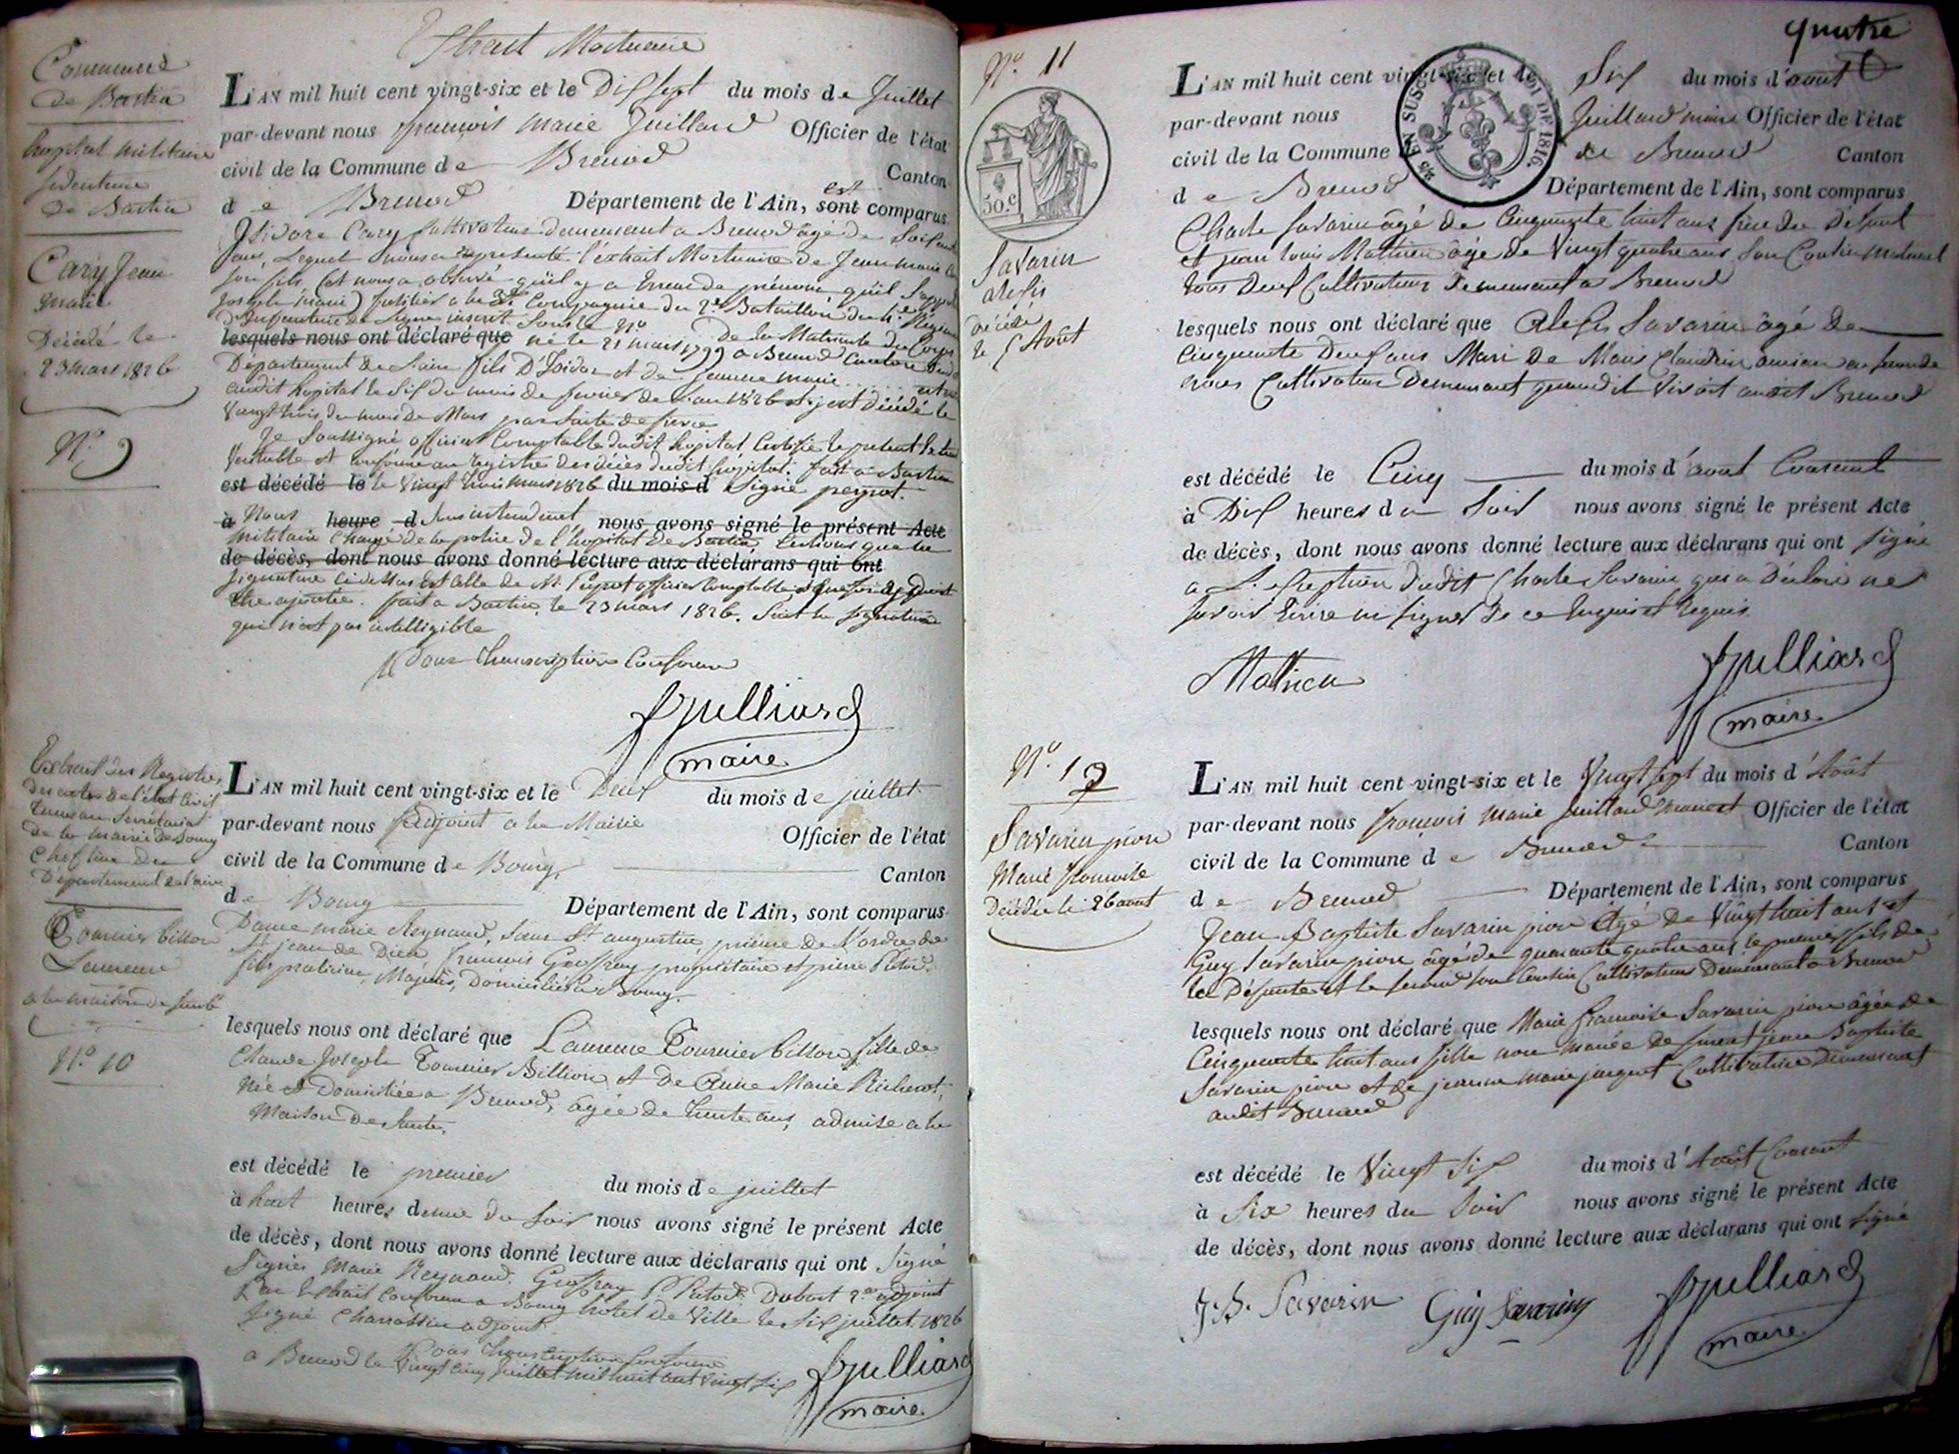 Extrait Mortuaire
Commune
de Bastia
hopital militaire
de Bastia
Cary Jean
marie
Décédé le
23 mars 1826
N.° 9
L'AN mil huit cent vingt-six et le Dix sept du mois de Juillet
par-devant nous françois marie Juillard Officier de l'état
civil de la Commune de Brenod Canton
de Brenod Département de l'Ain, est sont comparus
Isidore Cary Cultivateur demeurant a Brenod âgé de Soixante
ans, Lequel nous a représenté l'extrait Mortuaire de Jean marie
son fils, (et nous a observé qu'il y a Erreur de prénom qu'il S'appel
Joseph marie) fusilier a la 3e Compagnie du 2e Bataillon du Régiment
d'Infanterie de Ligne inscrit Sous le N° de la Matricule du Corps
lesquels nous ont déclaré que né le 21 mars 1799 a Brenod Canton dud
Département de L'ain fils D'Isidor et de Jeanne marie entré
audit hopital le Six du mois de fevrier de L'an 1826 et y est Décédé le
Vingt trois du mois de Mars par Suite de fievre
Je Soussigné officier Comptable dudit hopital Certifie le présent Extrait
Veritable et conforme au registre des décès dudit hopital. fait a Bastia
est décédé le le Vingt trois mars 1826 du mois d Signé peyrot.
à Nous heure d Sous intendant nous avons signé le présent Acte
militaire Chargé de la police de l'hopital de Bastia, Certifions que la
de décès, dont nous avons donné lecture aux déclarans qui ont
Signature ci dessus est Celle de Mr Peyrot officier Comptable et que foi doit
Etre ajoutée. fait a Bastia le 23 mars 1826. Suit la signature
qui n'est pas intelligible
Pour Transcription Conforme
Julliard
maire
Extrait des Registres
des actes de l'état Civil
tenus au Secrétariat
de la mairie de Bourg
Chef lieu du
Département de l'ain
Tournier billon
Laurence
a la maison de Santé
N.° 10
L'AN mil huit cent vingt-six et le Deux du mois de juillet
par-devant nous adjoint a la Mairie Officier de l'état
civil de la Commune de Bourg Canton
de Bourg Département de l'Ain, sont comparus
Dame marie Reynaud, Sœur St augustin, prieure de l'ordre de
St jean de Dieu, francois Geoffray propriétaire et pierre Putod
fils praticien, Majeurs, Domiciliés a Bourg.
lesquels nous ont déclaré que Laurence Tournier billon, fille de
Claude Joseph Tournier Billion, et de Anne Marie Richerot,
née et Domiciliée a Brenod, âgée de trente ans, admise a la
Maison de Santé,
est décédé le premier du mois de juillet
à huit heures demie du Soir nous avons signé le présent Acte
de décès, dont nous avons donné lecture aux déclarans qui ont Signé
Signés Marie Reynaud. Geoffray P. Putod. Dubost 2e adjoint
Par Extrait Conforme a Bourg hotel de Ville le Six juillet 1826
Signé Chanassin adjoint.
Pour Transcription Conforme
a Brenod le Vingt Cinq juillet mil huit cent vingt Six
Julliard
maire
quatre
N.° 11
50.c
EN SUS 9/10 LOI DE 1816
Savarin
alexis
décédé
le 5 Août
L'AN mil huit cent vingt-six et le Six du mois d'aout
par-devant nous Juillard maire Officier de l'état
civil de la Commune de Brenod Canton
de Brenod Département de l'Ain, sont comparus
Charle Savarin âgé de Cinquante huit ans frère du Défunt
et jean louis Mathieu âgé de Vingt quatre ans Son Cousin maternel
tous Deux Cultivateurs Demeurant a Brenod
lesquels nous ont déclaré que Alexis Savarin âgé de
Cinquante Deux ans Mari de Marie Claudine ancian en seconde
noces Cultivateur Demeurant quand il Vivoit audit Brenod
est décédé le Cinq du mois d'aout Courant
à Dix heures du Soir nous avons signé le présent Acte
de décès, dont nous avons donné lecture aux déclarans qui ont signé
a L'exception dudit Charle Savarin qui a Déclaré ne
savoir Ecrire ni signer de ce Enquis et Requis
Mathieu
Julliard
maire
N.° 12
Savarin pion
Marie francoise
Décédée le 26 aout
L'AN mil huit cent vingt-six et le Vingt Sept du mois d'Août
par-devant nous françois marie juillard maire et Officier de l'état
civil de la Commune de Brenod Canton
de Brenod Département de l'Ain, sont comparus
Jean Baptiste Savarin pion âgé de Vingt huit ans et
Guy Savarin pion âgé de quarante quatre ans le premier fils de
la Défunte et le second son Cousin Cultivateurs Demeurant a Brenod
lesquels nous ont déclaré que Marie francoise Savarin pion âgée de
Cinquante huit ans fille non mariée de feu jean Baptiste
Savarin pion et de jeanne marie jargeot Cultivatrice demeurant
audit Brenod
est décédé le Vingt Six du mois d'Août Courant
à Six heures du Soir nous avons signé le présent Acte
de décès, dont nous avons donné lecture aux déclarans qui ont signé
J. B. Savarin Guy Savarin Julliard
maire